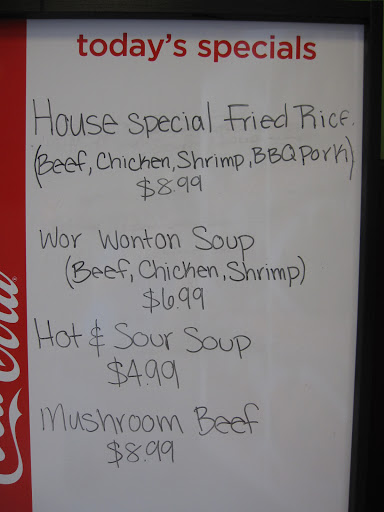 today's specials
House Special Fried Rice.
(Beef, Chicken, Shrimp, BBQ Pork)
$8.99
Wor Wonton Soup
(Beef, Chicken, Shrimp)
$6.99
Hot & Sour Soup
$4.99
Mushroom Beef
$8.99
Coca-Cola